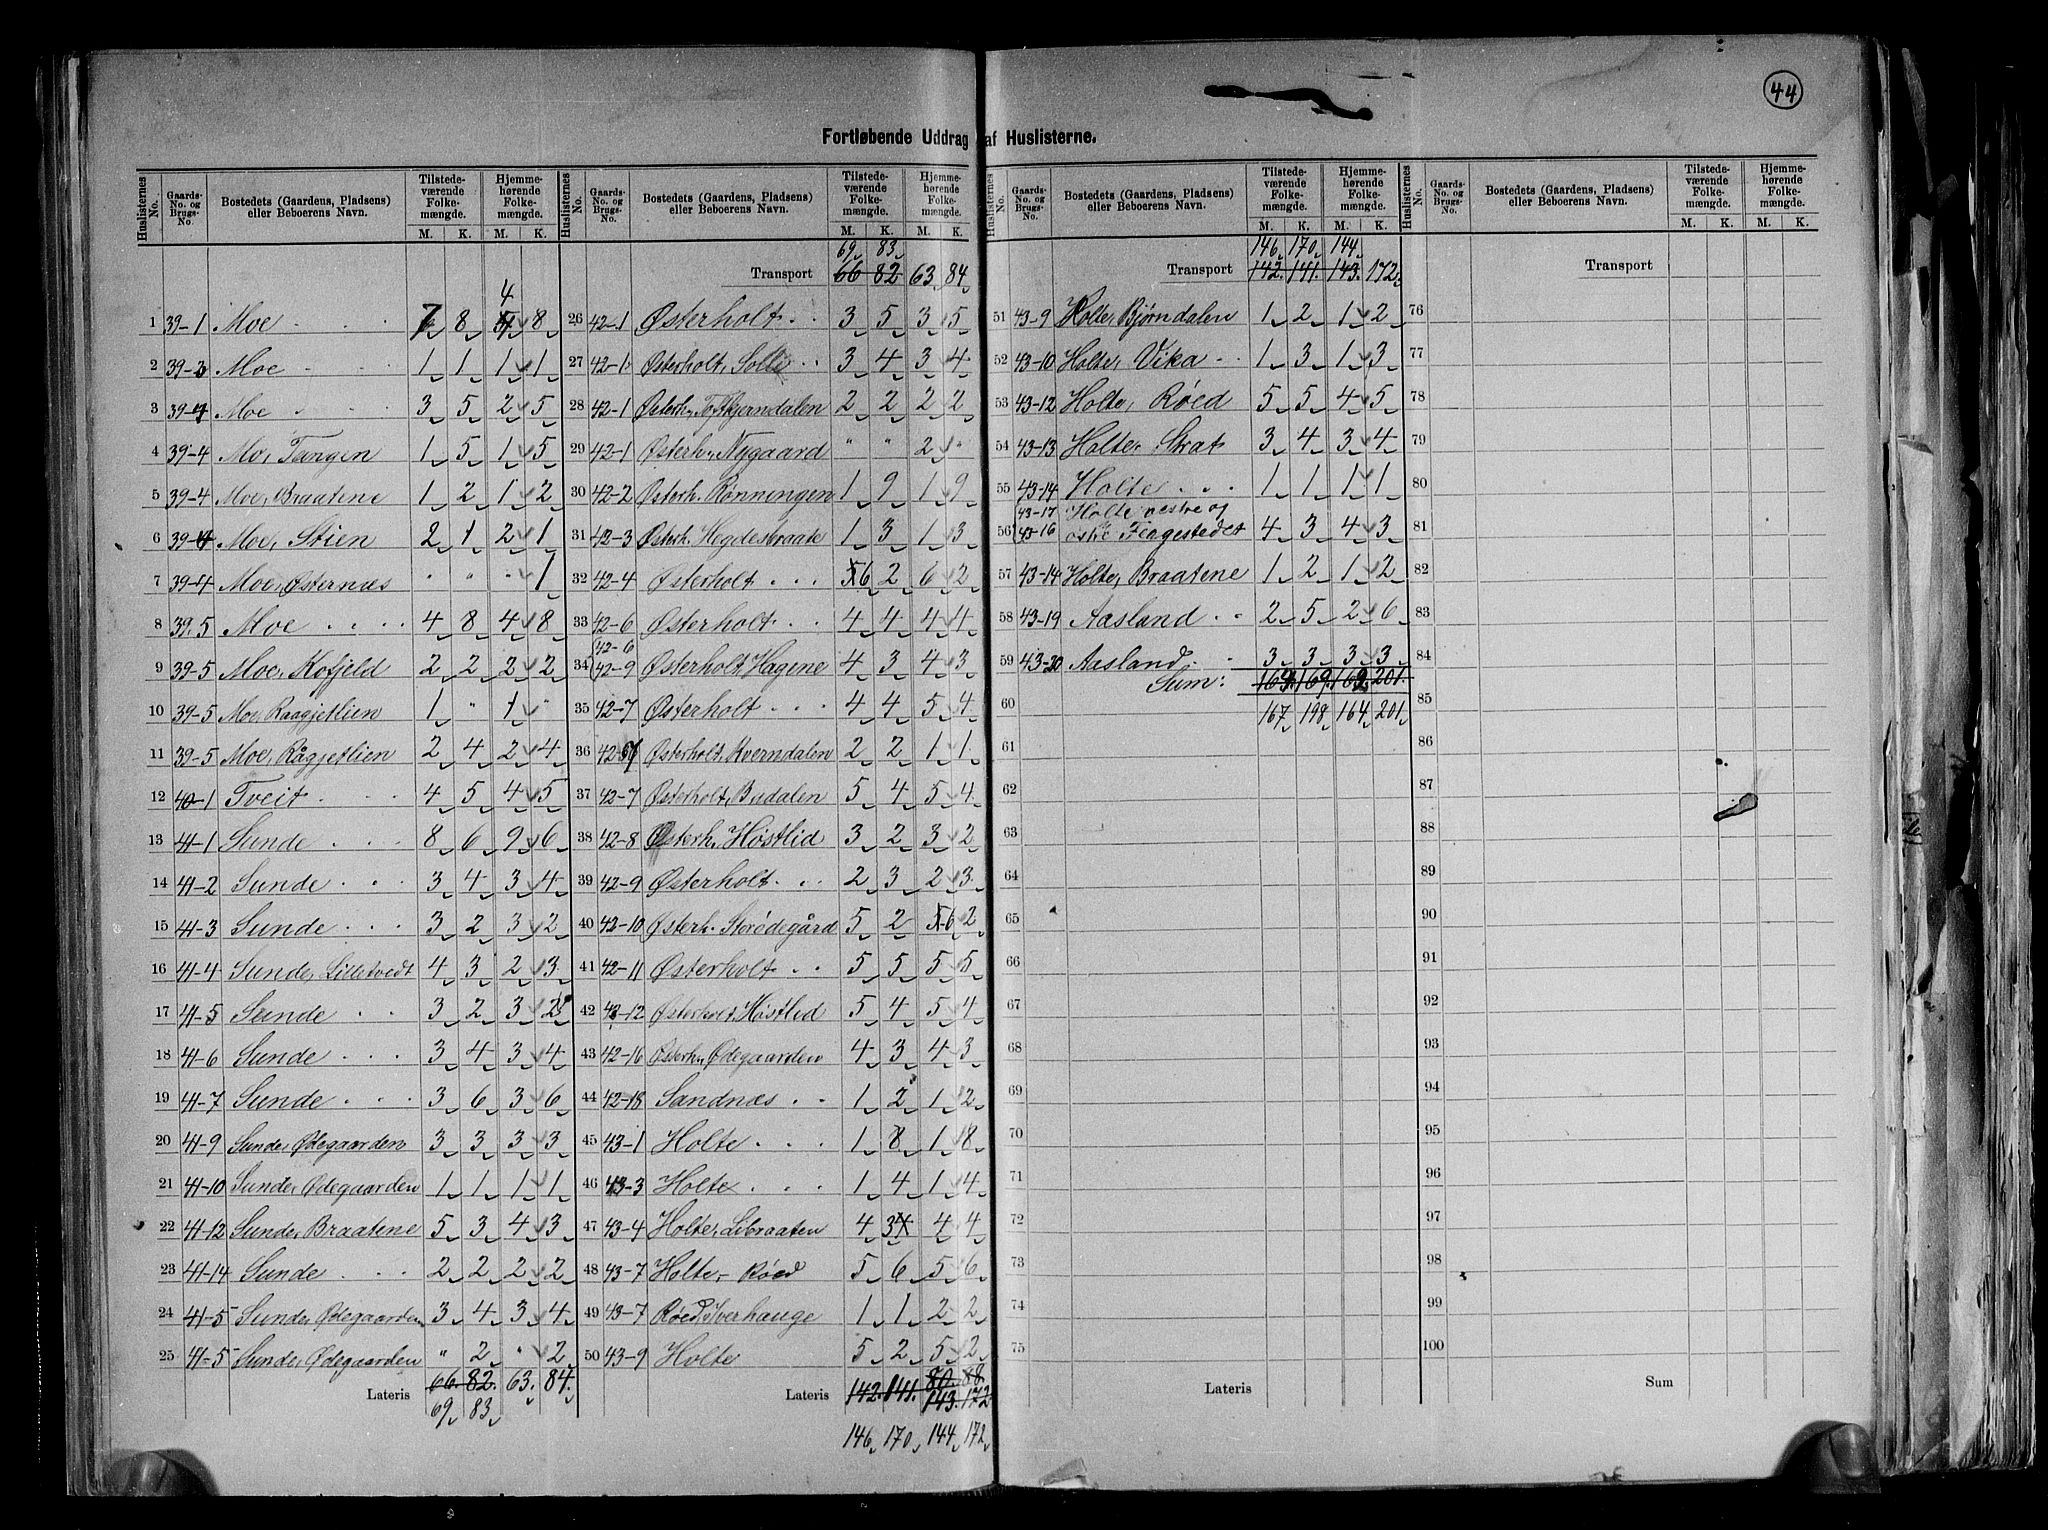 44
Fortløbende Uddrag af Huslisterne.
Huslisternes No. | Gaards-No. og Brugs-No. | Bostedets (Gaardens, Pladsens) eller Beboerens Navn. | Tilstedeværende Folkemængde. M. K. | Hjemmehørende Folkemængde. M. K.
1 39-1 Moe 7 8 4 8
2 39-2 Moe 1 1 1 1
3 39-4 Moe 3 5 2 5
4 39-4 Mo, Tangen 1 5 1 5
5 39-4 Moe, Braatene 1 2 1 2
6 39-4 Moe, Stien 2 1 2 1
7 39-4 Moe, Østernæs " " " 1
8 39-5 Moe 4 8 4 8
9 39-5 Moe, Kofjeld 2 2 2 2
10 39-5 Moe, Raagjetlien 1 " 1 "
11 39-5 Moe, Rågjetlien 2 4 2 4
12 40-1 Tveit 4 5 4 5
13 41-1 Sunde 8 6 9 6
14 41-2 Sunde 3 4 3 4
15 41-3 Sunde 3 2 3 2
16 41-4 Sunde, Lilletvedt 4 3 2 3
17 41-5 Sunde 3 2 3 2
18 41-6 Sunde 3 4 3 4
19 41-7 Sunde 3 6 3 6
20 41-9 Sunde, Ødegaarden 3 3 3 3
21 41-10 Sunde, Ødegaarden 1 1 1 1
22 41-12 Sunde, Braatene 5 3 4 3
23 41-14 Sunde 2 2 2 2
24 41-5 Sunde, Ødegaarden 3 4 3 4
25 41-5 Sunde, Ødegaarden " 2 " 2
Lateris 66. 82. 63. 84.
69 83
Huslisternes No. | Gaards-No. og Brugs-No. | Bostedets (Gaardens, Pladsens) eller Beboerens Navn. | Tilstedeværende Folkemængde. M. K. | Hjemmehørende Folkemængde. M. K.
69 83
Transport 66 82 63 84
26 42-1 Østerholt 3 5 3 5
27 42-1 Østerholt, Solli 3 4 3 4
28 42-1 Østerh., Toftkjerndalen 2 2 2 2
29 42-1 Østerh., Nygaard " " 2 "
30 42-2 Østerh. Rønningen 1 9 1 9
31 42-3 Østerh. Hegdesbraate 1 3 1 3
32 42-4 Østerholt 5 6 2 6 2
33 42-6 Østerholt 4 4 4 4
42-6
34 42-9 Østerholt, Hagene 4 3 4 3
35 42-7 Østerholt 4 4 5 4
36 Østerholt, Kverndalen 2 2 1 1
37 42-7 Østerholt, Budalen 5 4 5 4
38 42-8 Østerh., Høstlid 3 2 3 2
39 42-9 Østerholt 2 3 2 3
40 42-10 Østerh. Storødegård 5 2 5 6 2
41 42-11 Østerholt 5 5 5 5
42 42-12 Østerholt, Høstlid 5 4 5 4
43 42-16 Østerh., Ødegaarden 4 3 4 3
44 42-18 Sandnæs 1 2 1 2
45 43-1 Holte 1 8 1 8
46 43-3 Holte 1 4 1 4
47 43-4 Holte, Libraaten 4 3 4 4
48 43-7 Holte, Røed 5 6 5 6
49 43-7 Røed, Iverhauge 1 1 2 2
50 43-9 Holte 5 2 5 2
80. 88.
Lateris 142. 141. 143. 172.
146 170 144 172
Huslisternes No. | Gaards-No. og Brugs-No. | Bostedets (Gaardens, Pladsens) eller Beboerens Navn. | Tilstedeværende Folkemængde. M. K. | Hjemmehørende Folkemængde. M. K.
146 170 144
Transport 142. 141. 143. 172.
51 43-9 Holte, Bjørndalen 1 2 1 2
52 43-10 Holte, Vika 1 3 1 3
53 43-12 Holte, Røed 5 5 4 5
54 43-13 Holte, Strat 3 4 3 4
55 43-14 Holte 1 1 1 1
43-17 Holte vestre og
56 43-16 østre Flagestedet 4 3 4 3
57 43-14 Holte, Braatene 1 2 1 2
58 43-19 Aasland 2 5 2 6
59 43-20 Aasland 3 3 3 3
Sum: 164. 169. 162. 201.
60 167 198 164 201
61
62
63
64
65
66
67
68
69
70
71
72
73
74
75
Lateris
Huslisternes No. | Gaards-No. og Brugs-No. | Bostedets (Gaardens, Pladsens) eller Beboerens Navn. | Tilstedeværende Folkemængde. M. K. | Hjemmehørende Folkemængde. M. K.
Transport
76
77
78
79
80
81
82
83
84
85
86
87
88
89
90
91
92
93
94
95
96
97
98
99
100
Sum